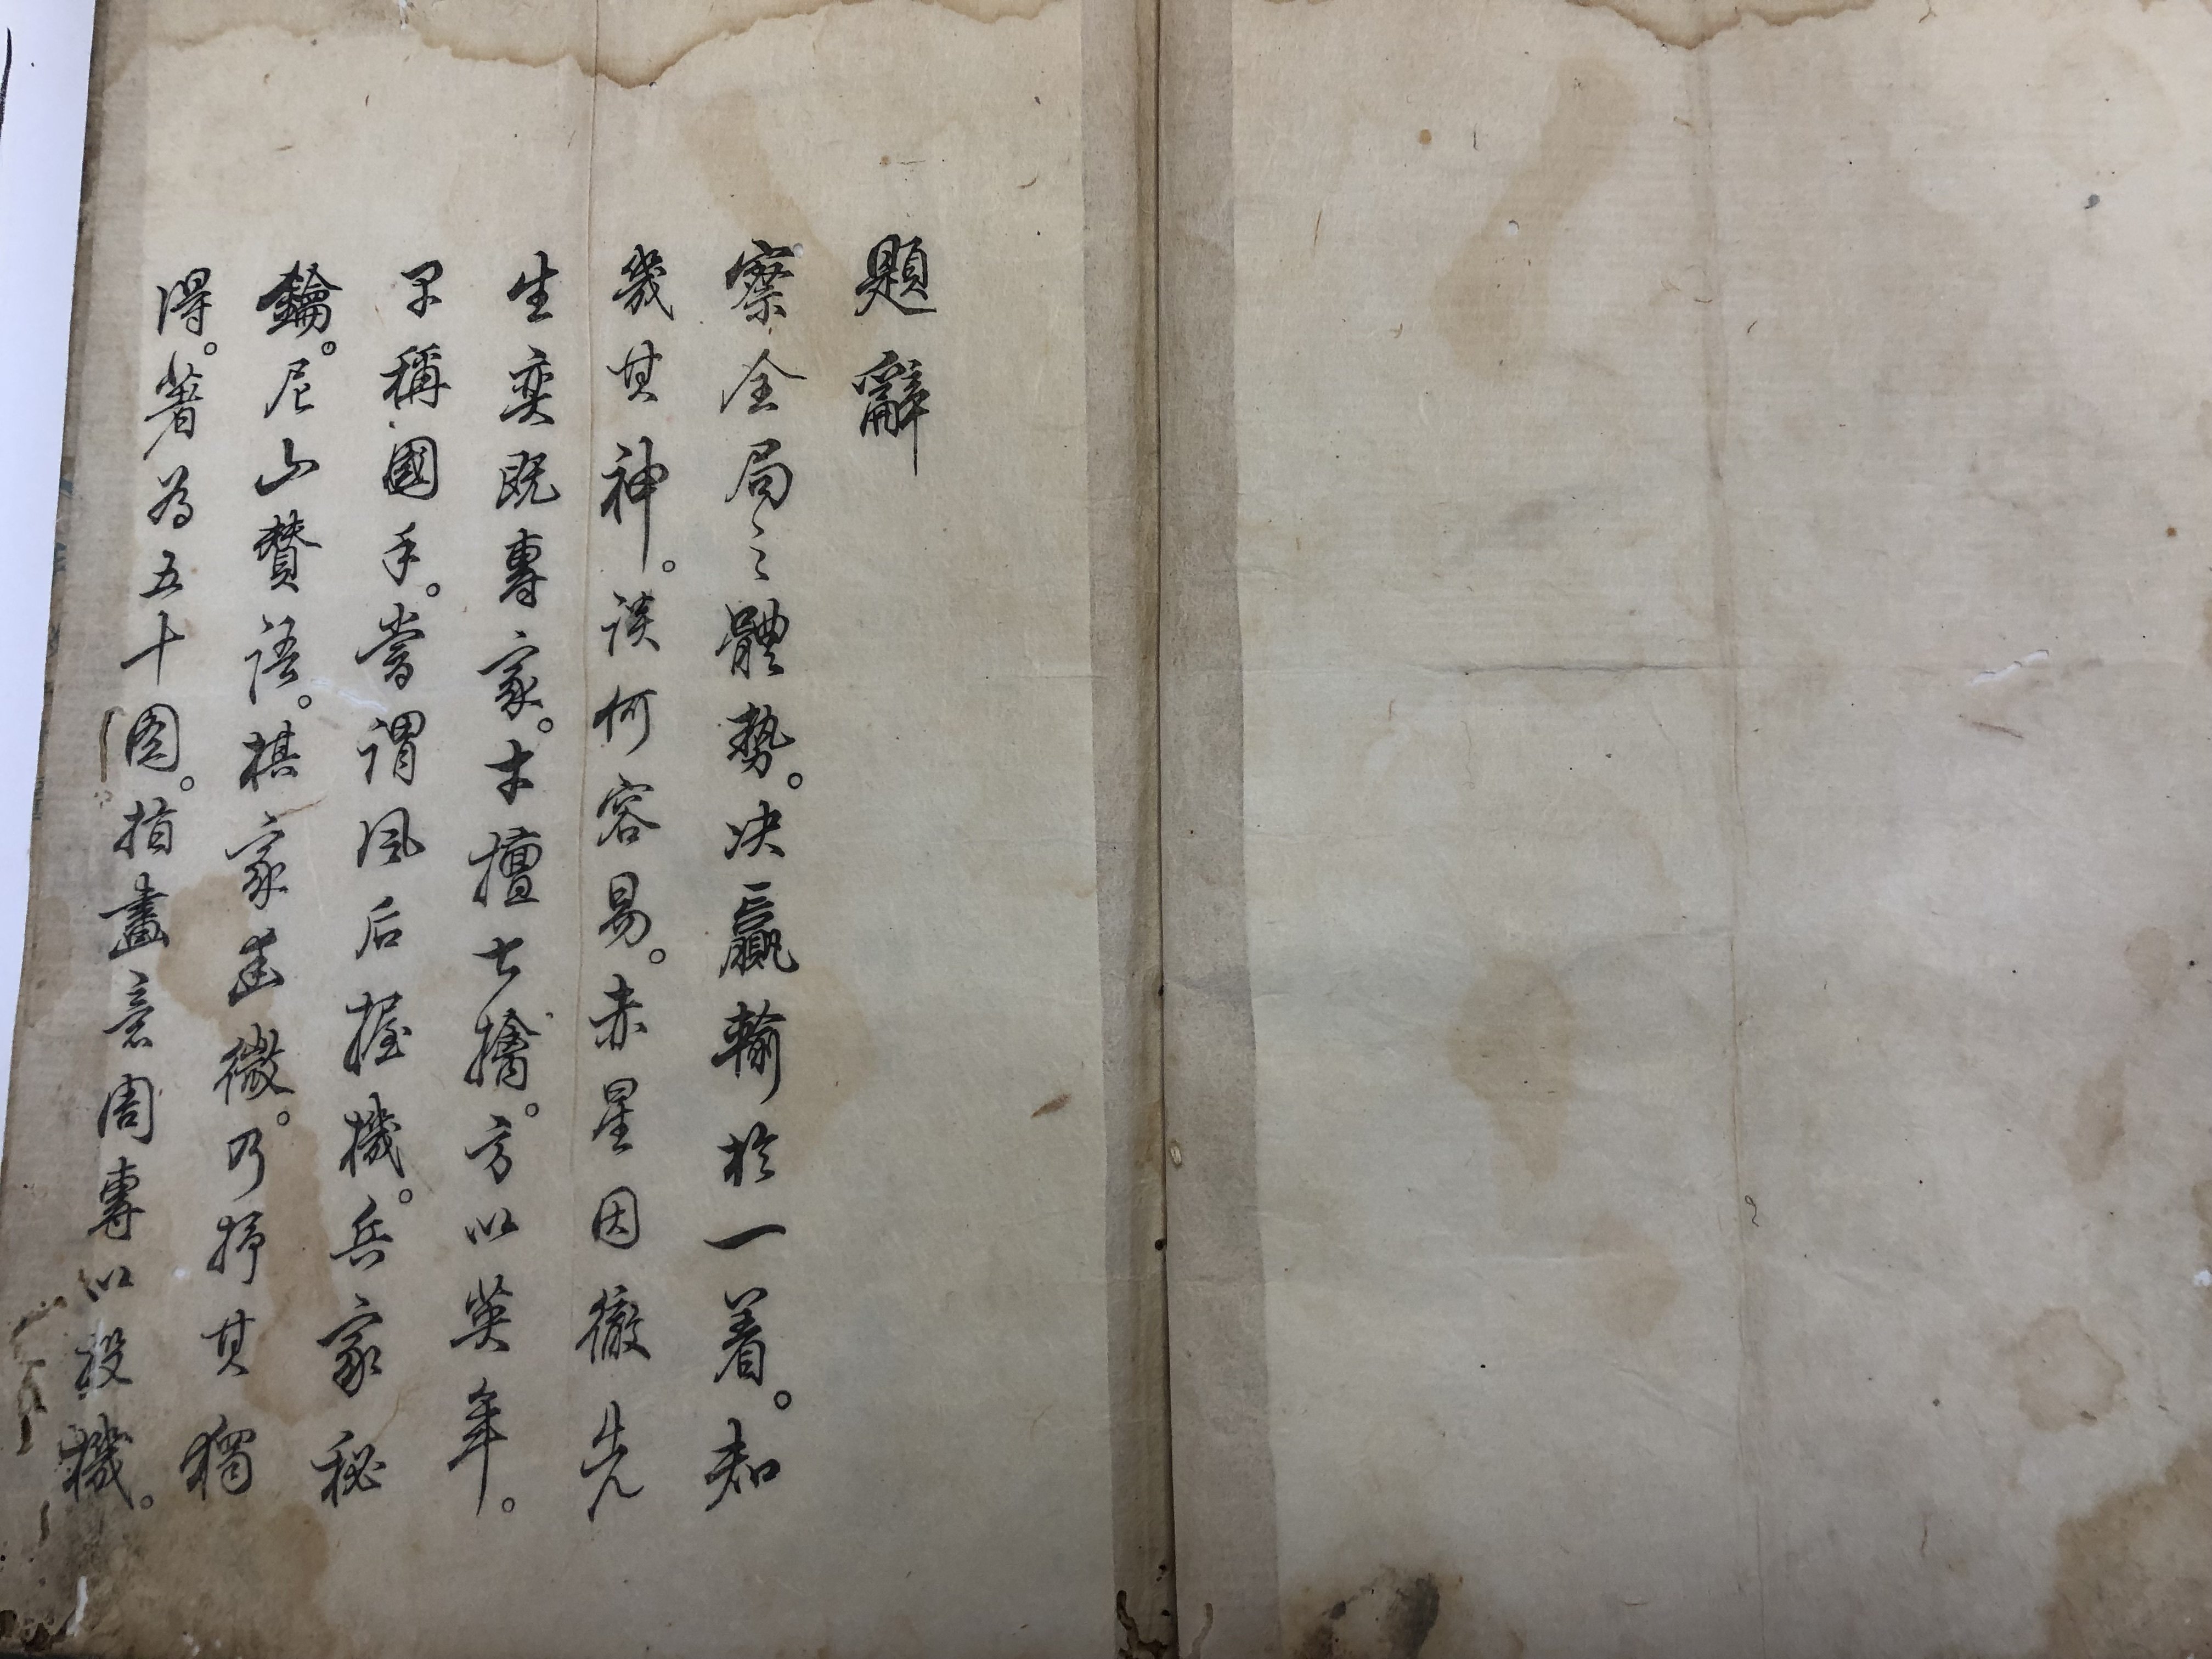 題辭
察全局之體勢。决贏輸於一着。知
幾其神。談何容易。赤星因徹先
生奕既專家。才擅七擒。方以英年。
早稱國手。嘗謂風后握機。兵家秘
鑰。尼山贊語。棋家微。乃抒其獨
得。著為五十圖。指畫意周專以投機。